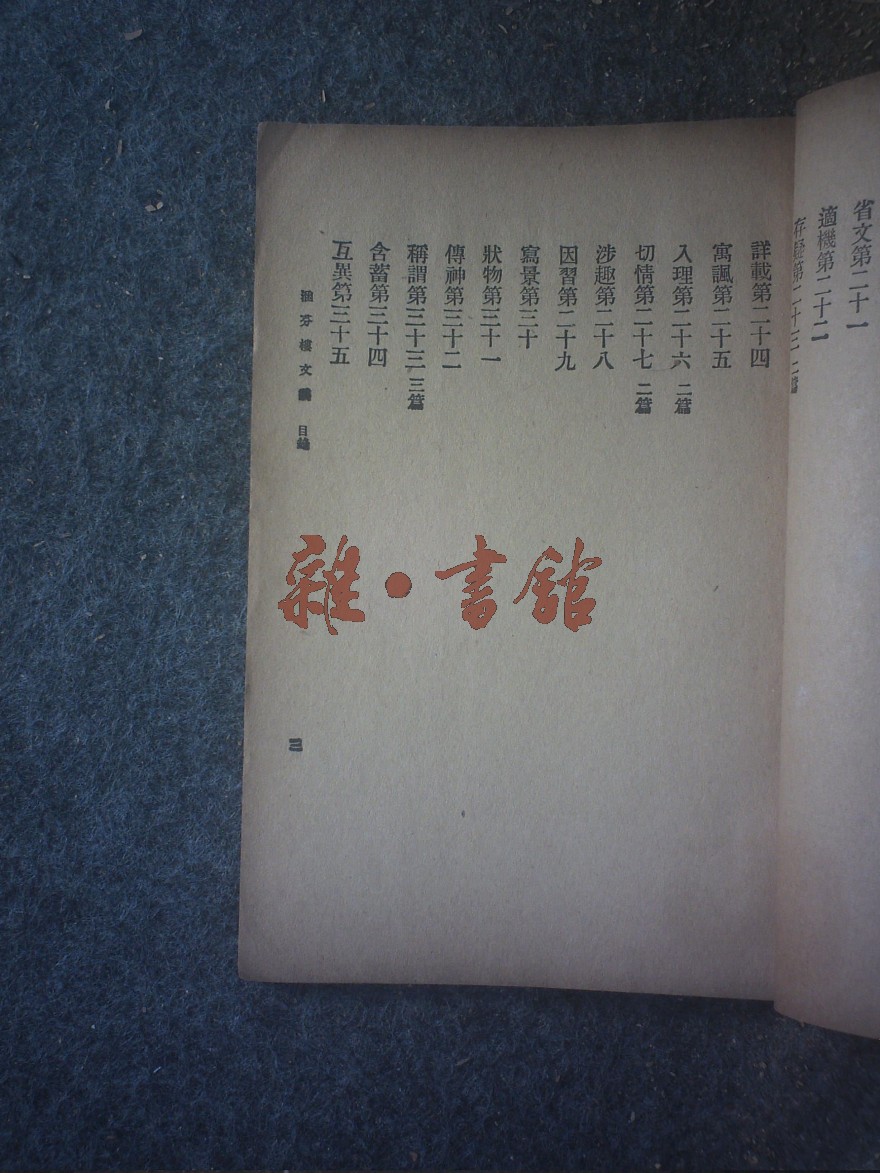 省文第二十一
適機第二十二
存疑第二十三 二篇
詳載第二十四
寓諷第二十五
入理第二十六 二篇
切情第二十七 二篇
涉趣第二十八
因習第二十九
寫景第三十
狀物第三十一
傳神第三十二
稱謂第三十三 三篇
含蓄第三十四
互異第三十五
涵芬樓文 目錄
三
雜·書館